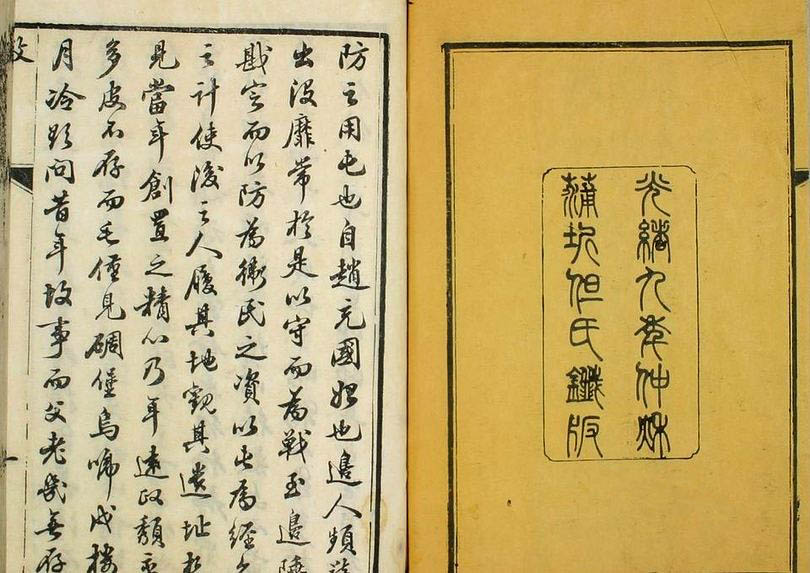 光緒九年仲秌
蒲圻但氏鑯版
防之用屯也自趙充國始也邊人頻
出沒靡常於是以守而為戰至邊陲
戡定而以防為衛民之資以屯為經久
之計使後之人履其地觀其遺址想
見當年創置之精心乃年遠政頹
多皮不存而毛僅見碉堡烏啼戍樓
月冷欲問昔年故事而父老幾無存